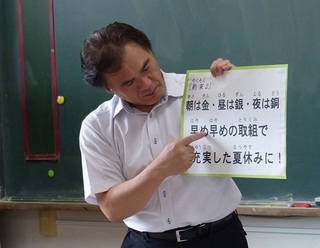 【約束2】
朝は金・昼は銀・夜は銅
早め早めの取組で
充実した夏休みに！